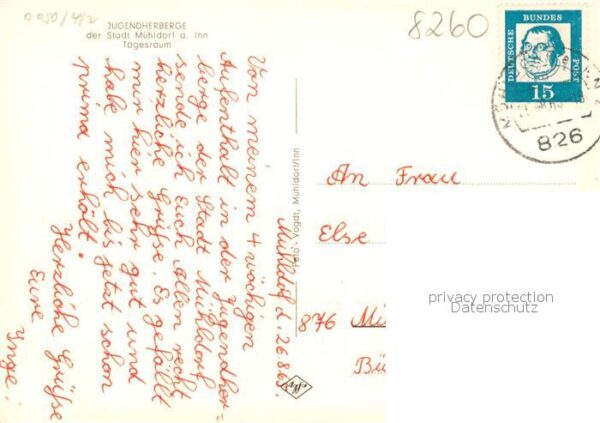 0050/4/2
JUGENDHERBERGE
der Stadt Mühldorf a. Inn
Tagesraum
8260
DEUTSCHE BUNDES POST
15
826
Mühldorf d. 26.8.63.
Von meinem 4 wöchigen
Aufenthalt in der Jugendher-
berge der Stadt Mühldorf
sende ich Euch Allen recht
herzliche Grüße. Es gefällt
mir hier sehr gut und
habe mich bis jetzt schon
prima erholt.
Herzliche Grüße
Eure
Inge!
Foto-Vogdt, Mühldorf/Inn
An Frau
Else
876 Mi
Bü
privacy protection
Datenschutz